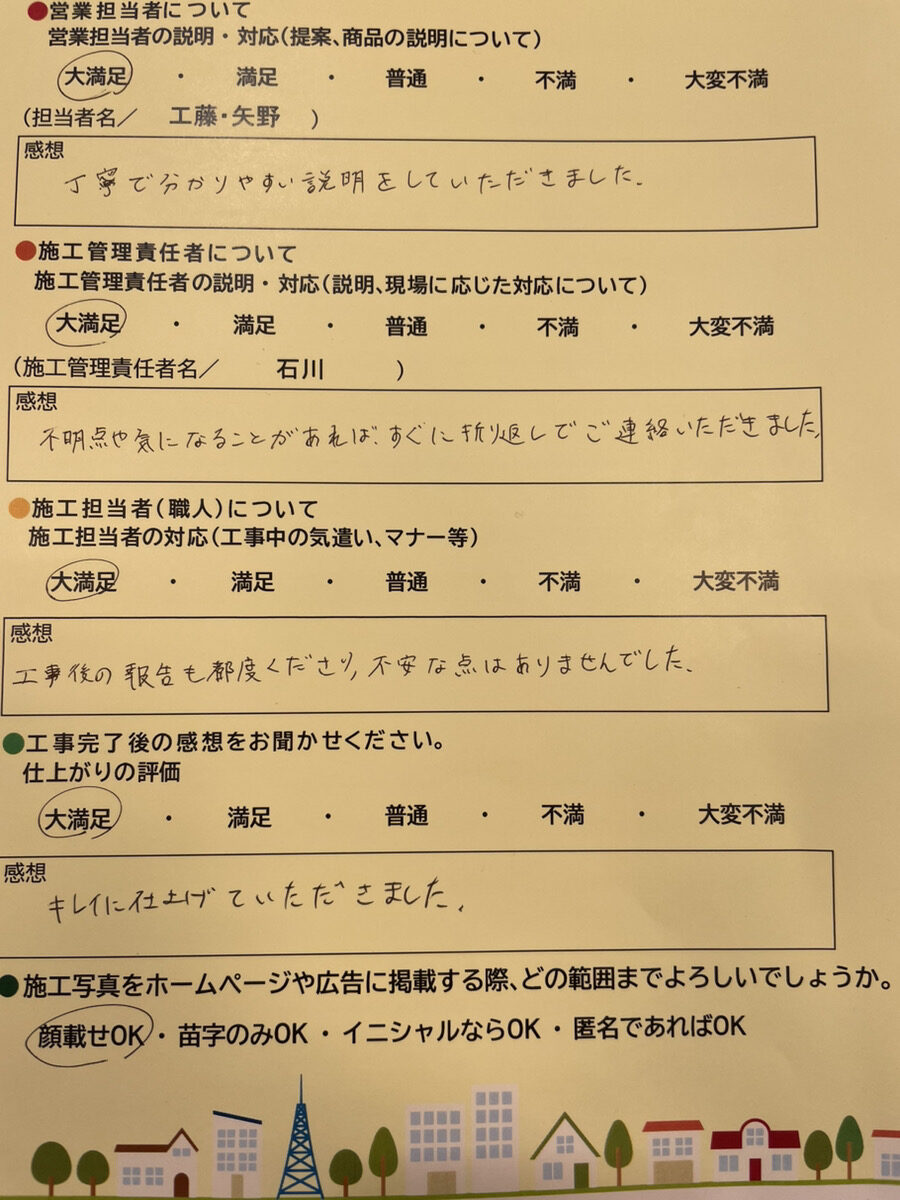 ●営業担当者について
営業担当者の説明・対応(提案、商品の説明について)
大満足 ・ 満足 ・ 普通 ・ 不満 ・ 大変不満
(担当者名／ 工藤・矢野 )
感想
丁寧で分かりやすい説明をしていただきました。
●施工管理責任者について
施工管理責任者の説明・対応(説明、現場に応じた対応について)
大満足 ・ 満足 ・ 普通 ・ 不満 ・ 大変不満
(施工管理責任者名／ 石川 )
感想
不明点や気になることがあれば、すぐに折り返しでご連絡いただきました。
●施工担当者(職人)について
施工担当者の対応(工事中の気遣い、マナー等)
大満足 ・ 満足 ・ 普通 ・ 不満 ・ 大変不満
感想
工事後の報告も都度くださり、不安な点はありませんでした。
●工事完了後の感想をお聞かせください。
仕上がりの評価
大満足 ・ 満足 ・ 普通 ・ 不満 ・ 大変不満
感想
キレイに仕上げていただきました。
●施工写真をホームページや広告に掲載する際、どの範囲までよろしいでしょうか。
顔載せOK・苗字のみOK・イニシャルならOK・匿名であればOK